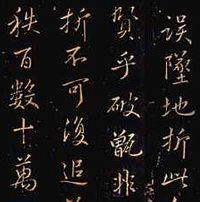 誤墜地折此
賢乎破甑非
折不可復追
秩百數十萬